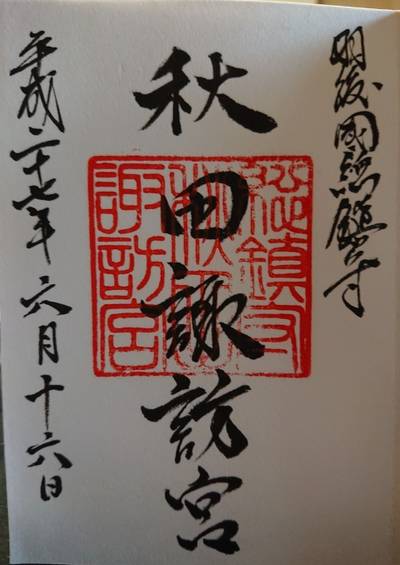 羽後国総鎮守
秋田諏訪宮
総鎮守
秋田
諏訪宮
平成二十七年六月十六日